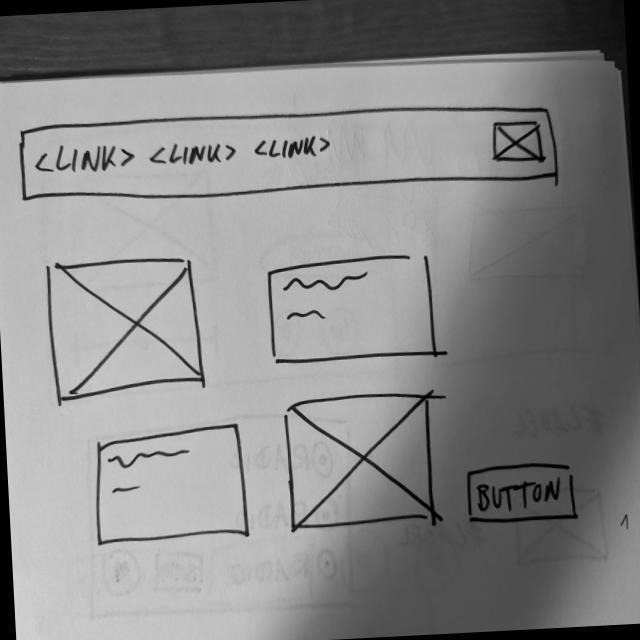 <LINK> <LINK> <LINK>
BUTTON